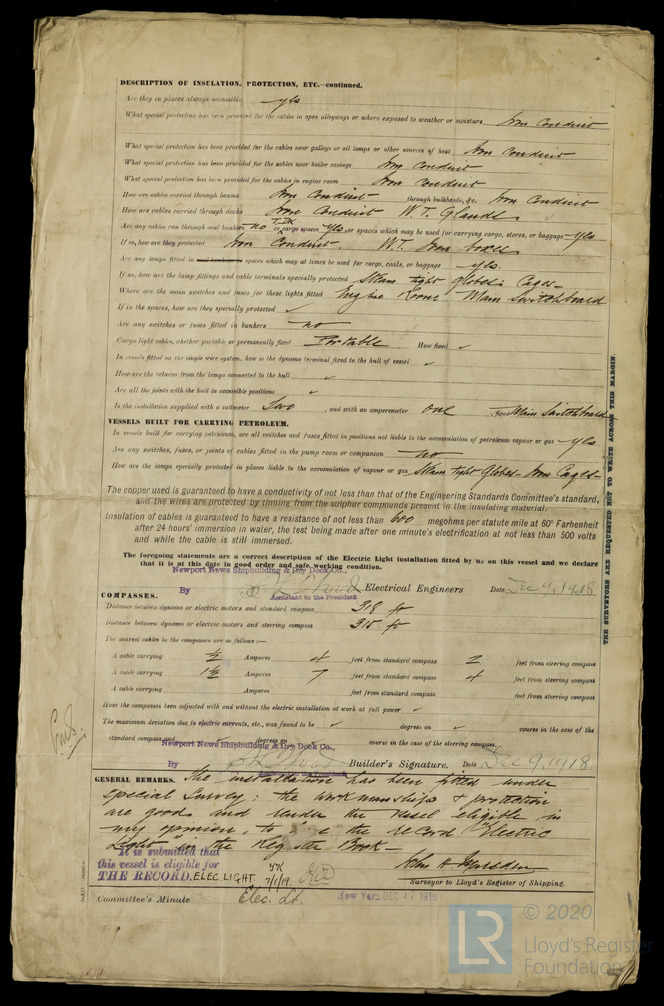 DESCRIPTION OF INSULATION, PROTECTION, ETC.—continued.
Are they in places always accessible yes
What special protection has been provided for the cables in open alleyways or where exposed to weather or moisture Iron Conduit
What special protection has been provided for the cables near galleys or oil lamps or other sources of heat Iron Conduit
What special protection has been provided for the cables near boiler casings Iron Conduit
What special protection has been provided for the cables in engine room Iron Conduit
How are cables carried through beams Iron Conduit through bulkheads, &c. Iron Conduit
How are cables carried through decks Iron Conduit W.T. Glands
Are any cables run through coal bunkers no or cargo spaces yes, or spaces which may be used for carrying cargo, stores, or baggage yes
If so, how are they protected Iron Conduit. W.T. Iron boxes
Are any lamps fitted in coal bunkers or spaces which may at times be used for cargo, coals, or baggage yes.
If so, how are the lamp fittings and cable terminals specially protected Steam tight globes. Cages—
Where are the main switches and fuses for these lights fitted Engine Room Main Switchboard
If in the spaces, how are they specially protected ✓
Are any switches or fuses fitted in bunkers no
Cargo light cables, whether portable or permanently fixed Portable How fixed ✓
In vessels fitted on the single wire system, how is the dynamo terminal fixed to the hull of vessel ✓
How are the returns from the lamps connected to the hull ✓
Are all the joints with the hull in accessible positions ✓
In the installation supplied with a voltmeter Two, and with an amperemeter one, fixed Main Switchboard
VESSELS BUILT FOR CARRYING PETROLEUM.
In vessels built for carrying petroleum, are all switches and fuses fitted in positions not liable to the accumulation of petroleum vapour or gas yes
Are any switches, fuses, or joints of cables fitted in the pump room or companion no
How are the lamps specially protected in places liable to the accumulation of vapour or gas Steam tight Globes— Iron Cages—
The copper used is guaranteed to have a conductivity of not less than that of the Engineering Standards Committee's standard,
and the wires are protected by tinning from the sulphur compounds present in the insulating material.
Insulation of cables is guaranteed to have a resistance of not less than 600 megohms per statute mile at 60° Farhenheit
after 24 hours' immersion in water, the test being made after one minute's electrification at not less than 500 volts
and while the cable is still immersed.
The foregoing statements are a correct description of the Electric Light installation fitted by us on this vessel and we declare
that it is at this date in good order and safe working condition.
Newport News Shipbuilding & Dry Dock Co.,
By Electrical Engineers Date Dec 9, 1918
Assistant to the President
COMPASSES.
Distance between dynamo or electric motors and standard compass 318 ft
Distance between dynamo or electric motors and steering compass 315 ft
The nearest cables to the compasses are as follows:—
A cable carrying ½ Amperes 4 feet from standard compass 2 feet from steering compass
A cable carrying 1½ Amperes 7 feet from standard compass 4 feet from steering compass
A cable carrying Amperes feet from standard compass feet from steering compass
Have the compasses been adjusted with and without the electric installation at work at full power ✓
The maximum deviation due to electric currents, etc., was found to be ✓ degrees on ✓ course in the case of the
standard compass and ✓ degrees on course in the case of the steering compass.
Newport News Shipbuilding & Dry Dock Co.,
By Builder's Signature. Date Dec 9, 1918
Assistant to the President
GENERAL REMARKS. The installation has been fitted under
special survey: the workmanship & protection
are good and render the vessel eligible in
my opinion, to have the record "Electric
Light" in the Register Book—
It is submitted that
this vessel is eligible for
THE RECORD. ELEC LIGHT
7/1/19.
John H. Marsden
Surveyor to Lloyd's Register of Shipping.
Committee's Minute Elec. Lt. New York DEC 17 1918
THE SURVEYORS ARE REQUESTED NOT TO WRITE ACROSS THIS MARGIN.
LR
© 2020
Lloyd's Register
Foundation